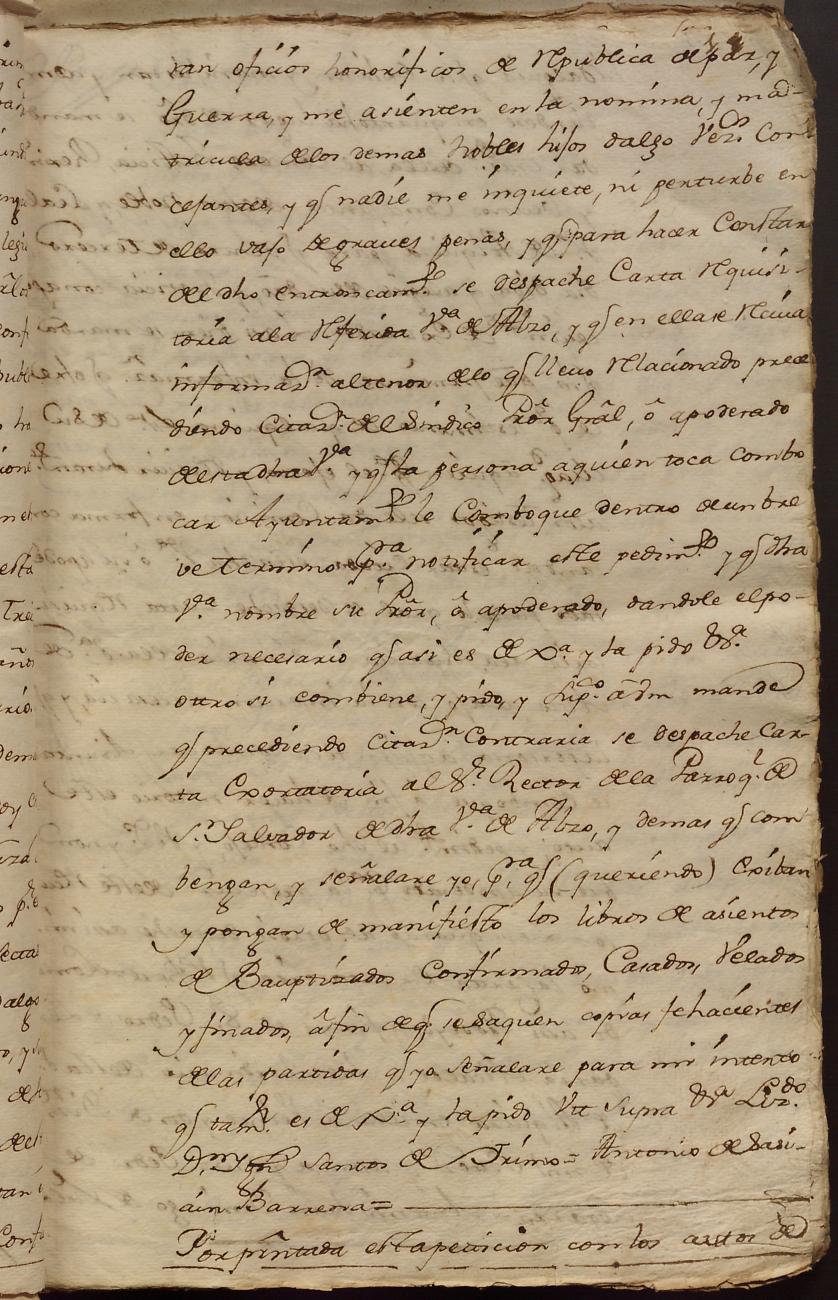 ran oficios honoríficos de Republica de paz, y
Guerra, y me asienten en la nomina, y ma-
tricula de los demas nobles hijos dalgo Vezs. Con
cejantes, y q̃ nadie me inquiete, ni perturbe en
ello vajo de graves penas, y q̃ para hacer Constar
del dho entroncamto. se despache Carta Requisi-
toria a la Referida Va. de Abzo, y q̃ en ella se Reciva
informazn. al tenor de lo q̃ llevo Relacionado prece
diendo Citazn. del Sindico Prõr Grãl, ô apoderado
de esta dha Va. y q̃ la persona a quien toca combo
car Ayuntamto. le Comboque dentro de un bre
ve termino pra. notificar este pedimto. y q̃ dha
Va. nombre su Prõr, ô apoderado, dandole el po-
der necesario q̃ asi es de Xa. y la pido Va.
otro si combiene, y pido, y Supco. a Vm mande
q̃ precediendo Citazn. Contraria se despache Car-
ta Exortatoria al Sr. Rector de la Parroqa. de
Sn. Salvador de dha Va. de Abzo, y demas q̃ com
bengan, y señalare yo, pra. q̃ (queriendo) Exiban
y pongan de manifiesto los libros de asientos
de Bauptizados Confirmados, Casados, Velados
y finados, â fin de q̃ se saquen copias fehacientes
de las partidas q̃ yo señalare para mi intento
q̃ tamn. es de Xa. y la pido Vtt Supra Lizdo.
Dn. Santos de Antonio de Sasi-
ain Barrena=
Por prñtada esta peticion con los autos de